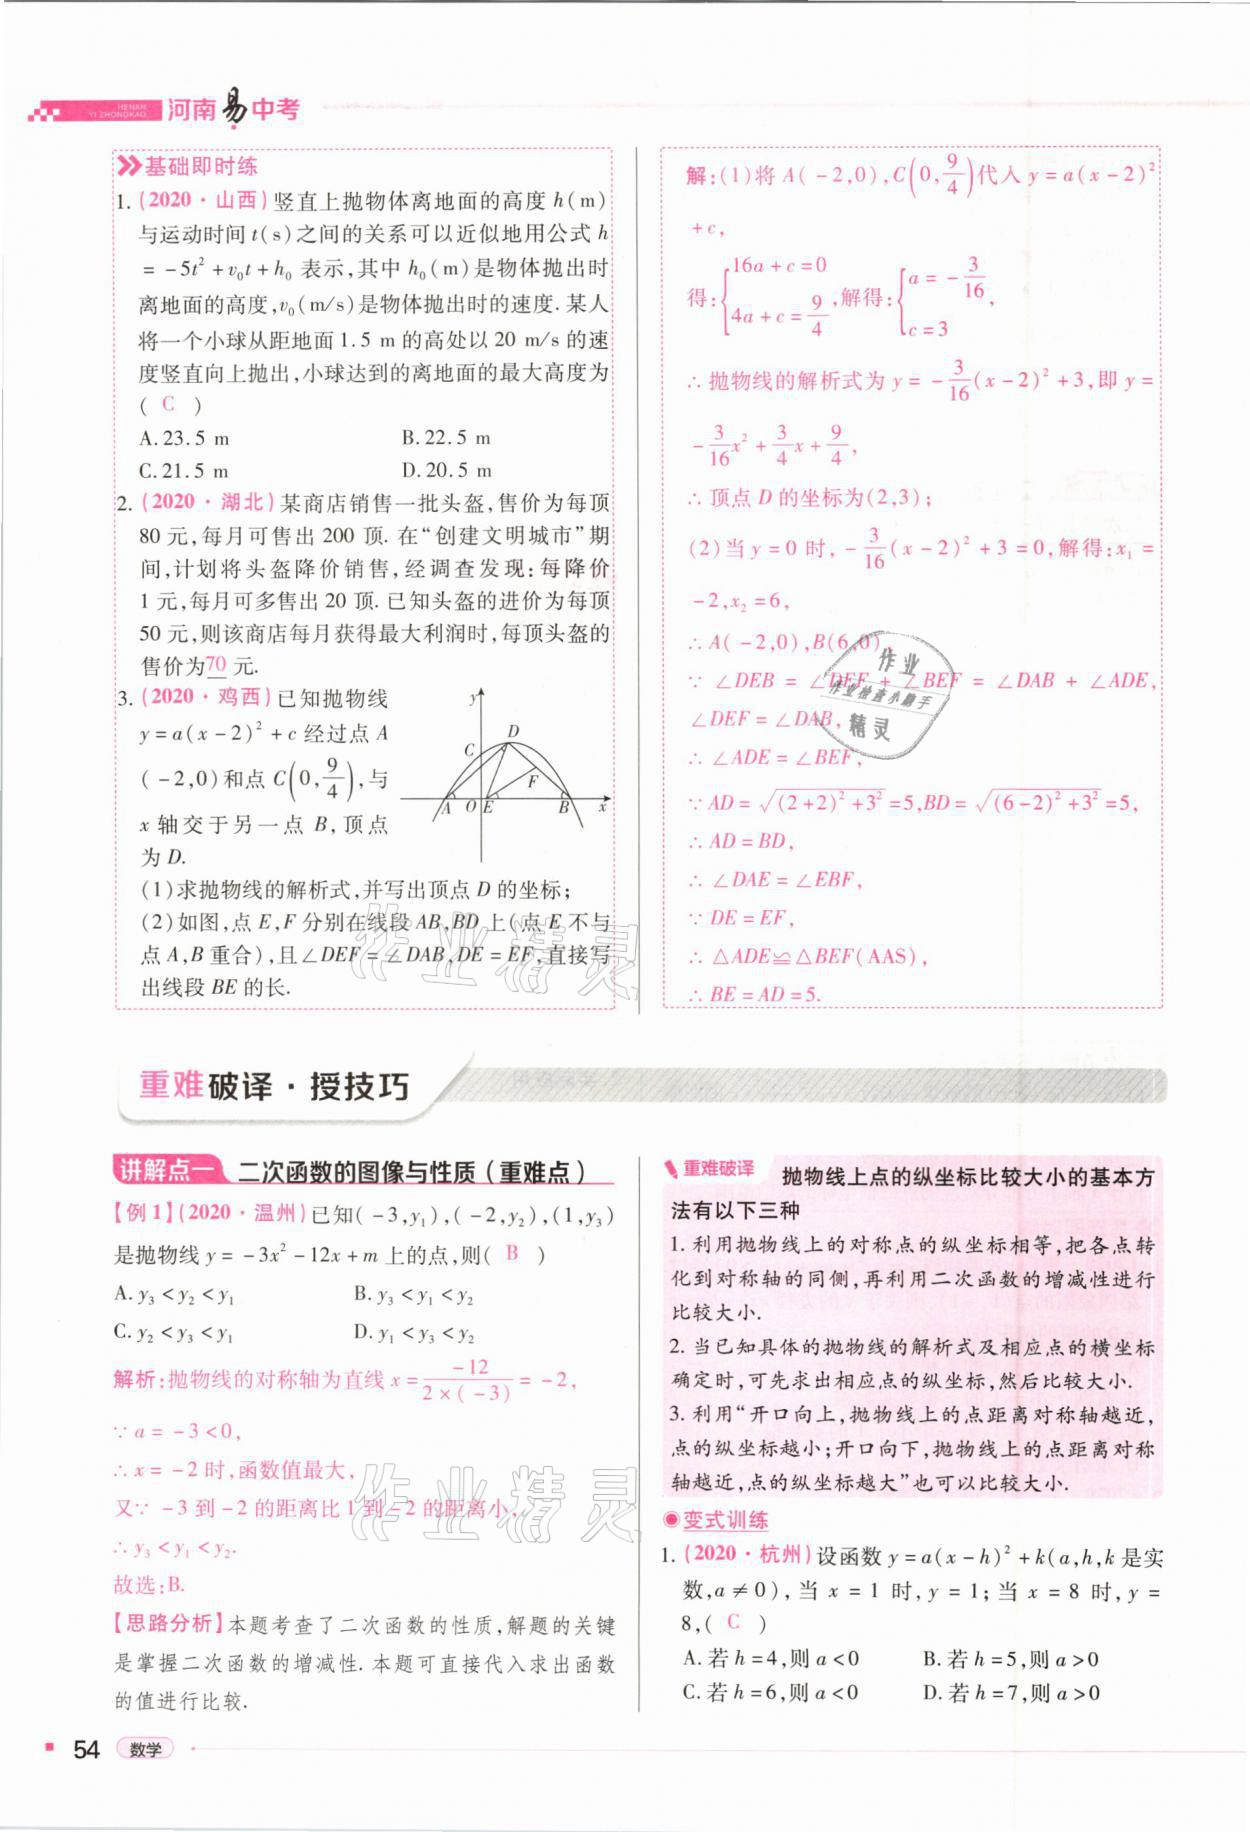 HENAN
YI ZHONGKAO
河南易中考
基础即时练
1. (2020·山西)竖直上抛物体离地面的高度 h(m)
与运动时间 t(s)之间的关系可以近似地用公式 h
= -5t² + v₀t + h₀ 表示,其中 h₀(m)是物体抛出时
离地面的高度,v₀(m/s)是物体抛出时的速度. 某人
将一个小球从距地面 1.5 m 的高处以 20 m/s 的速
度竖直向上抛出,小球达到的离地面的最大高度为
( C )
A. 23.5 m B. 22.5 m
C. 21.5 m D. 20.5 m
2. (2020·湖北)某商店销售一批头盔,售价为每顶
80 元,每月可售出 200 顶. 在“创建文明城市”期
间,计划将头盔降价销售,经调查发现:每降价
1 元,每月可多售出 20 顶. 已知头盔的进价为每顶
50 元,则该商店每月获得最大利润时,每顶头盔的
售价为70 元.
3. (2020·鸡西)已知抛物线
y = a(x-2)² + c 经过点 A
(-2,0)和点 C(0, 9/4),与
x 轴交于另一点 B,顶点
为 D.
y
D
C
F
A O E B x
(1)求抛物线的解析式,并写出顶点 D 的坐标;
(2)如图,点 E,F 分别在线段 AB,BD 上(点 E 不与
点 A,B 重合),且∠DEF = ∠DAB,DE = EF,直接写
出线段 BE 的长.
解:(1)将 A(-2,0),C(0, 9/4)代入 y = a(x-2)²
+c,
得:{16a + c = 0 4a + c = 9/4,解得:{a = -3/16 c = 3,
∴ 抛物线的解析式为 y = -3/16(x-2)² + 3,即 y =
-3/16x² + 3/4x + 9/4,
∴ 顶点 D 的坐标为(2,3);
(2)当 y = 0 时, -3/16(x-2)² + 3 = 0,解得:x₁ =
-2,x₂ = 6,
∴ A(-2,0),B(6,0),
∵ ∠DEB = ∠DEF + ∠BEF = ∠DAB + ∠ADE,
∠DEF = ∠DAB,
∴ ∠ADE = ∠BEF,
∵ AD = √((2+2)² + 3²) = 5,BD = √((6-2)² + 3²) = 5,
∴ AD = BD,
∴ ∠DAE = ∠EBF,
∵ DE = EF,
∴ △ADE≌△BEF(AAS),
∴ BE = AD = 5.
作业
作业检查小助手
精灵
作业精灵
重难破译·授技巧
讲解点一 二次函数的图像与性质(重难点)
【例 1】(2020·温州)已知(-3,y₁),(-2,y₂),(1,y₃)
是抛物线 y = -3x² - 12x + m 上的点,则( B )
A. y₃ < y₂ < y₁ B. y₃ < y₁ < y₂
C. y₂ < y₃ < y₁ D. y₁ < y₃ < y₂
解析:抛物线的对称轴为直线 x = -12/(2×(-3)) = -2,
∵ a = -3 < 0,
∴ x = -2 时,函数值最大,
又∵ -3 到 -2 的距离比 1 到 -2 的距离小,
∴ y₃ < y₁ < y₂.
故选:B.
作业精灵
【思路分析】本题考查了二次函数的性质,解题的关键
是掌握二次函数的增减性. 本题可直接代入求出函数
的值进行比较.
重难破译 抛物线上点的纵坐标比较大小的基本方
法有以下三种
1. 利用抛物线上的对称点的纵坐标相等,把各点转
化到对称轴的同侧,再利用二次函数的增减性进行
比较大小.
2. 当已知具体的抛物线的解析式及相应点的横坐标
确定时,可先求出相应点的纵坐标,然后比较大小.
3. 利用“开口向上,抛物线上的点距离对称轴越近,
点的纵坐标越小;开口向下,抛物线上的点距离对称
轴越近,点的纵坐标越大”也可以比较大小.
变式训练
1. (2020·杭州)设函数 y = a(x-h)² + k(a,h,k 是实
数,a ≠ 0),当 x = 1 时,y = 1;当 x = 8 时,y =
8,( C )
A. 若 h = 4,则 a < 0 B. 若 h = 5,则 a > 0
C. 若 h = 6,则 a < 0 D. 若 h = 7,则 a > 0
54 数学